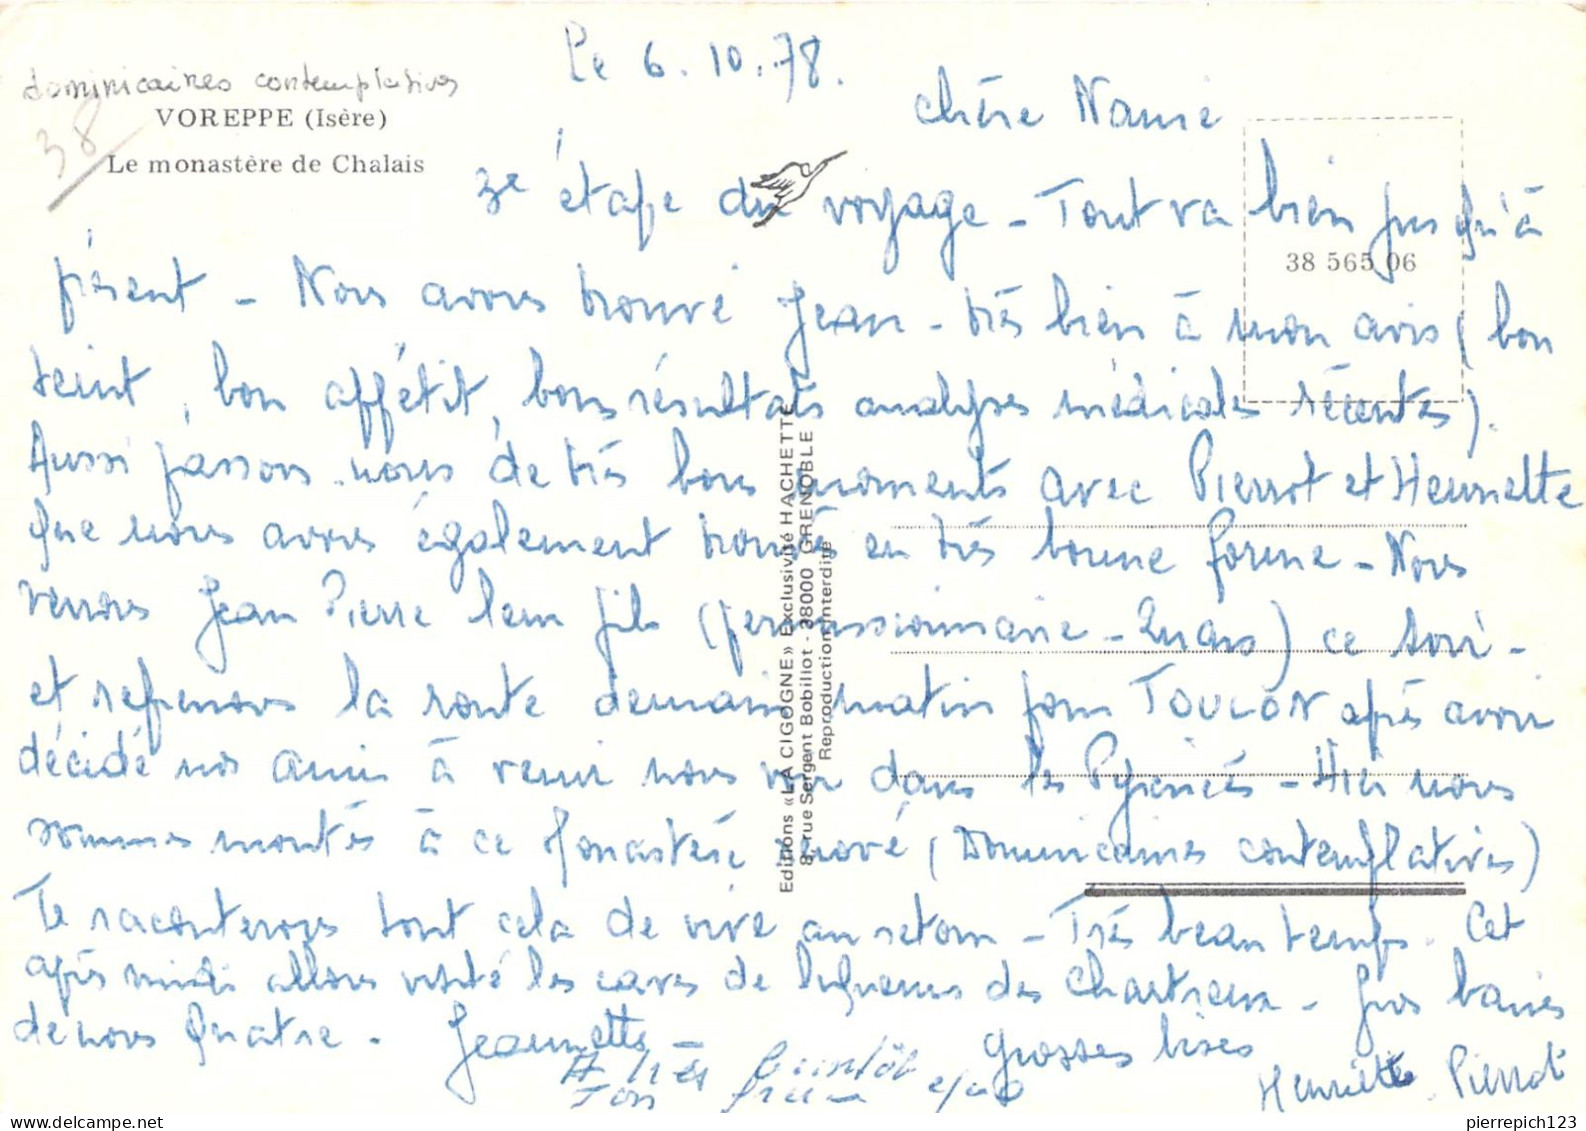 Le 6.10.78.
dominicaines contemplatives
VOREPPE (Isère)
38
Le monastère de Chalais
chère Namie
3e étape du voyage - Tout va bien jusqu'à
présent - Nous avons trouvé Jean - très bien à mon avis (bon
teint, bon appétit, bons résultats analyses médicales récentes).
Aussi passons-nous de très bons moments avec Pierrot et Henriette
que nous avons également trouvés en très bonne forme - Nous
verrons Jean Pierre leur fils (permissionnaire - 2 mars) ce soir -
et reprenons la route demain matin pour TOULON après avoir
décidé nos amis à venir nous voir dans les Pyrénées - Hier nous
sommes montés à ce Monastère rénové (Dominicaines contemplatives)
Te raconterons tout cela de vive au retour - Très beau temps. Cet
après midi allons visité les caves de liqueurs des Chartreux - gros baisers
de nous quatre. Jeannette - grosses bises
A très bientôt
Ton
Henriette. Pierrot
38 565 06
Editions «LA CIGOGNE» Exclusivité HACHETTE
8, rue Sergent Bobillot - 38000 GRENOBLE
Reproduction interdite
pierrepich123